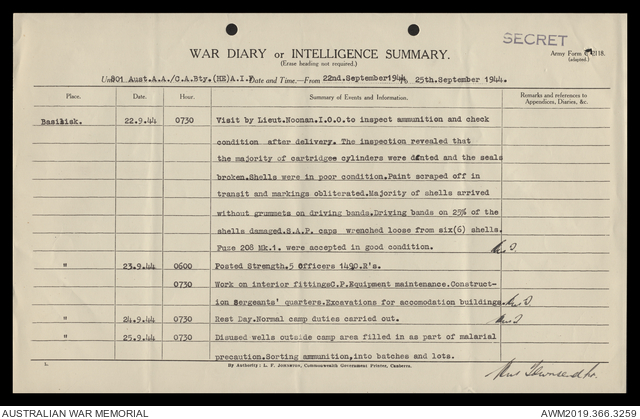 SECRET
WAR DIARY or INTELLIGENCE SUMMARY.
(Erase heading not required.)
Army Form C.2118.
(adapted.)
Unit 801 Aust.A.A./C.A.Bty.(HE)A.I.F. Date and Time.—From 22nd.September 1944 to 25th.September 1944.
Place. Date. Hour. Summary of Events and Information. Remarks and references to
Appendices, Diaries, &c.
Basilisk. 22.9.44 0730 Visit by Lieut.Noonan.I.O.O.to inspect ammunition and check
condition after delivery. The inspection revealed that
the majority of cartridgee cylinders were dented and the seals
broken.Shells were in poor condition.Paint scraped off in
transit and markings obliterated.Majority of shells arrived
without grummets on driving bands.Driving bands on 25% of the
shells damaged.S.A.P. caps wrenched loose from six(6) shells.
Fuze 208 Mk.1. were accepted in good condition.
" 23.9.44 0600 Posted Strength.5 Officers 149O.R's.
0730 Work on interior fittingsC.P.Equipment maintenance.Construct-
ion Sergeants' quarters.Excavations for accomodation buildings.
" 24.9.44 0730 Rest Day.Normal camp duties carried out.
" 25.9.44 0730 Disused wells outside camp area filled in as part of malarial
precaution.Sorting ammunition,into batches and lots.
L. By Authority: L. F. Johnston, Commonwealth Government Printer, Canberra.
AUSTRALIAN WAR MEMORIAL
AWM2019.366.3259